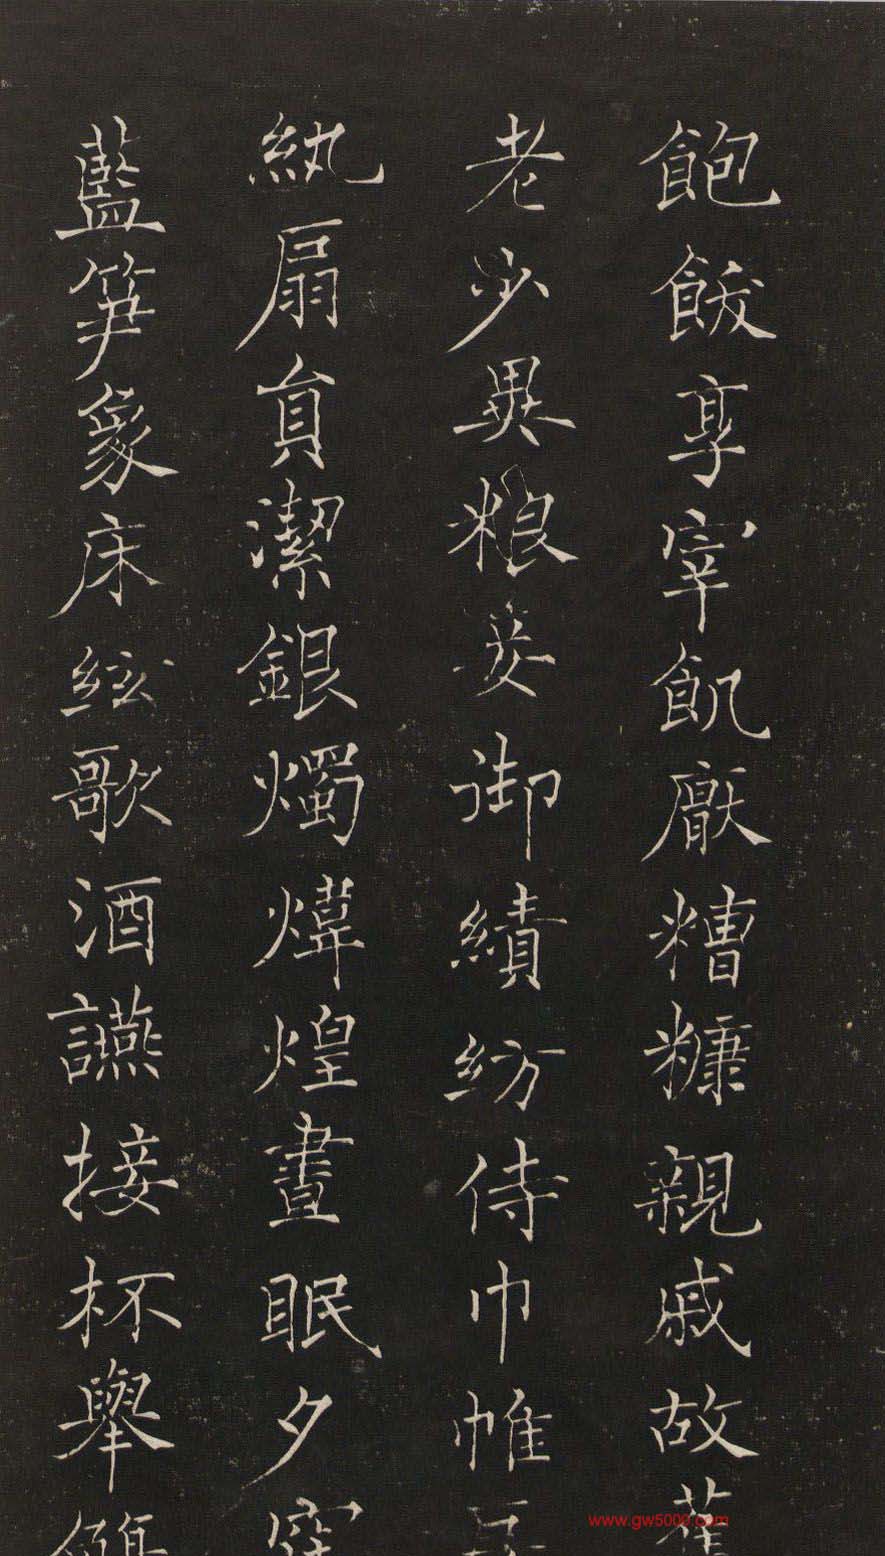 飽飫享宰飢厭糟糠親戚故舊
老少異粮妾御績紡侍巾帷房
紈扇員潔銀燭煒煌晝眠夕寐
藍笋象床絃歌酒讌接杯舉觴
www.gw5000.com